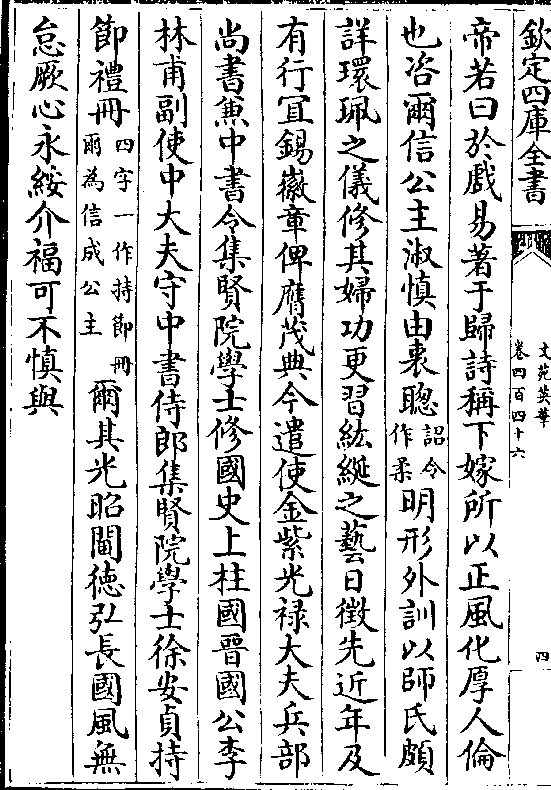 欽定四庫全書
文苑英華
卷四百四十六
四
帝若曰於戲易著于歸詩稱下嫁所以正風化厚人倫
也咨爾信公主淑慎由衷聰詔令作柔明形外訓以師氏頗
詳環珮之儀修其婦功更習紘綖之藝日徵先近年及
有行宜錫徽章俾膺茂典今遣使金紫光禄大夫兵部
尚書兼中書令集賢院學士修國史上柱國晉國公李
林甫副使中大夫守中書侍郎集賢院學士徐安貞持
節禮冊四字一作持節冊爾為信成公主爾其光昭閫徳弘長國風無
怠厥心永綏介福可不慎與